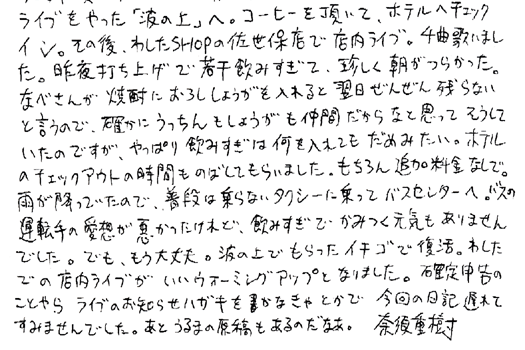 ライブをやった「波の上」へ。コーヒーを頂いて、ホテルへチェック
イン。その後、わしたSHOPの佐世保店で店内ライブ。4曲歌いまし
た。昨夜打ち上げで若干飲みすぎて、珍しく朝がつらかった。
なべさんが焼酎におろししょうがを入れると翌日ぜんぜん残らない
と言うので、確かにうっちんもしょうがも仲間だからなと思ってそうして
いたのですが、やっぱり飲みすぎは何を入れてもだめみたい。ホテル
のチェックアウトの時間ものばしてもらいました。もちろん追加料金なしで。
雨が降っていたので、普段は乗らないタクシーに乗ってバスセンターへ。バスの
運転手の愛想が悪かったけれど、飲みすぎでかみつく元気もありません
でした。でも、もう大丈夫。波の上でもらったイチゴで復活。わした
での店内ライブがいいウォーミングアップとなりました。確定申告の
ことやらライブのお知らせハガキを書かなきゃとかで今回の日記遅れて
すみませんでした。あとうるまの原稿もあるのだなあ。 奈須重樹